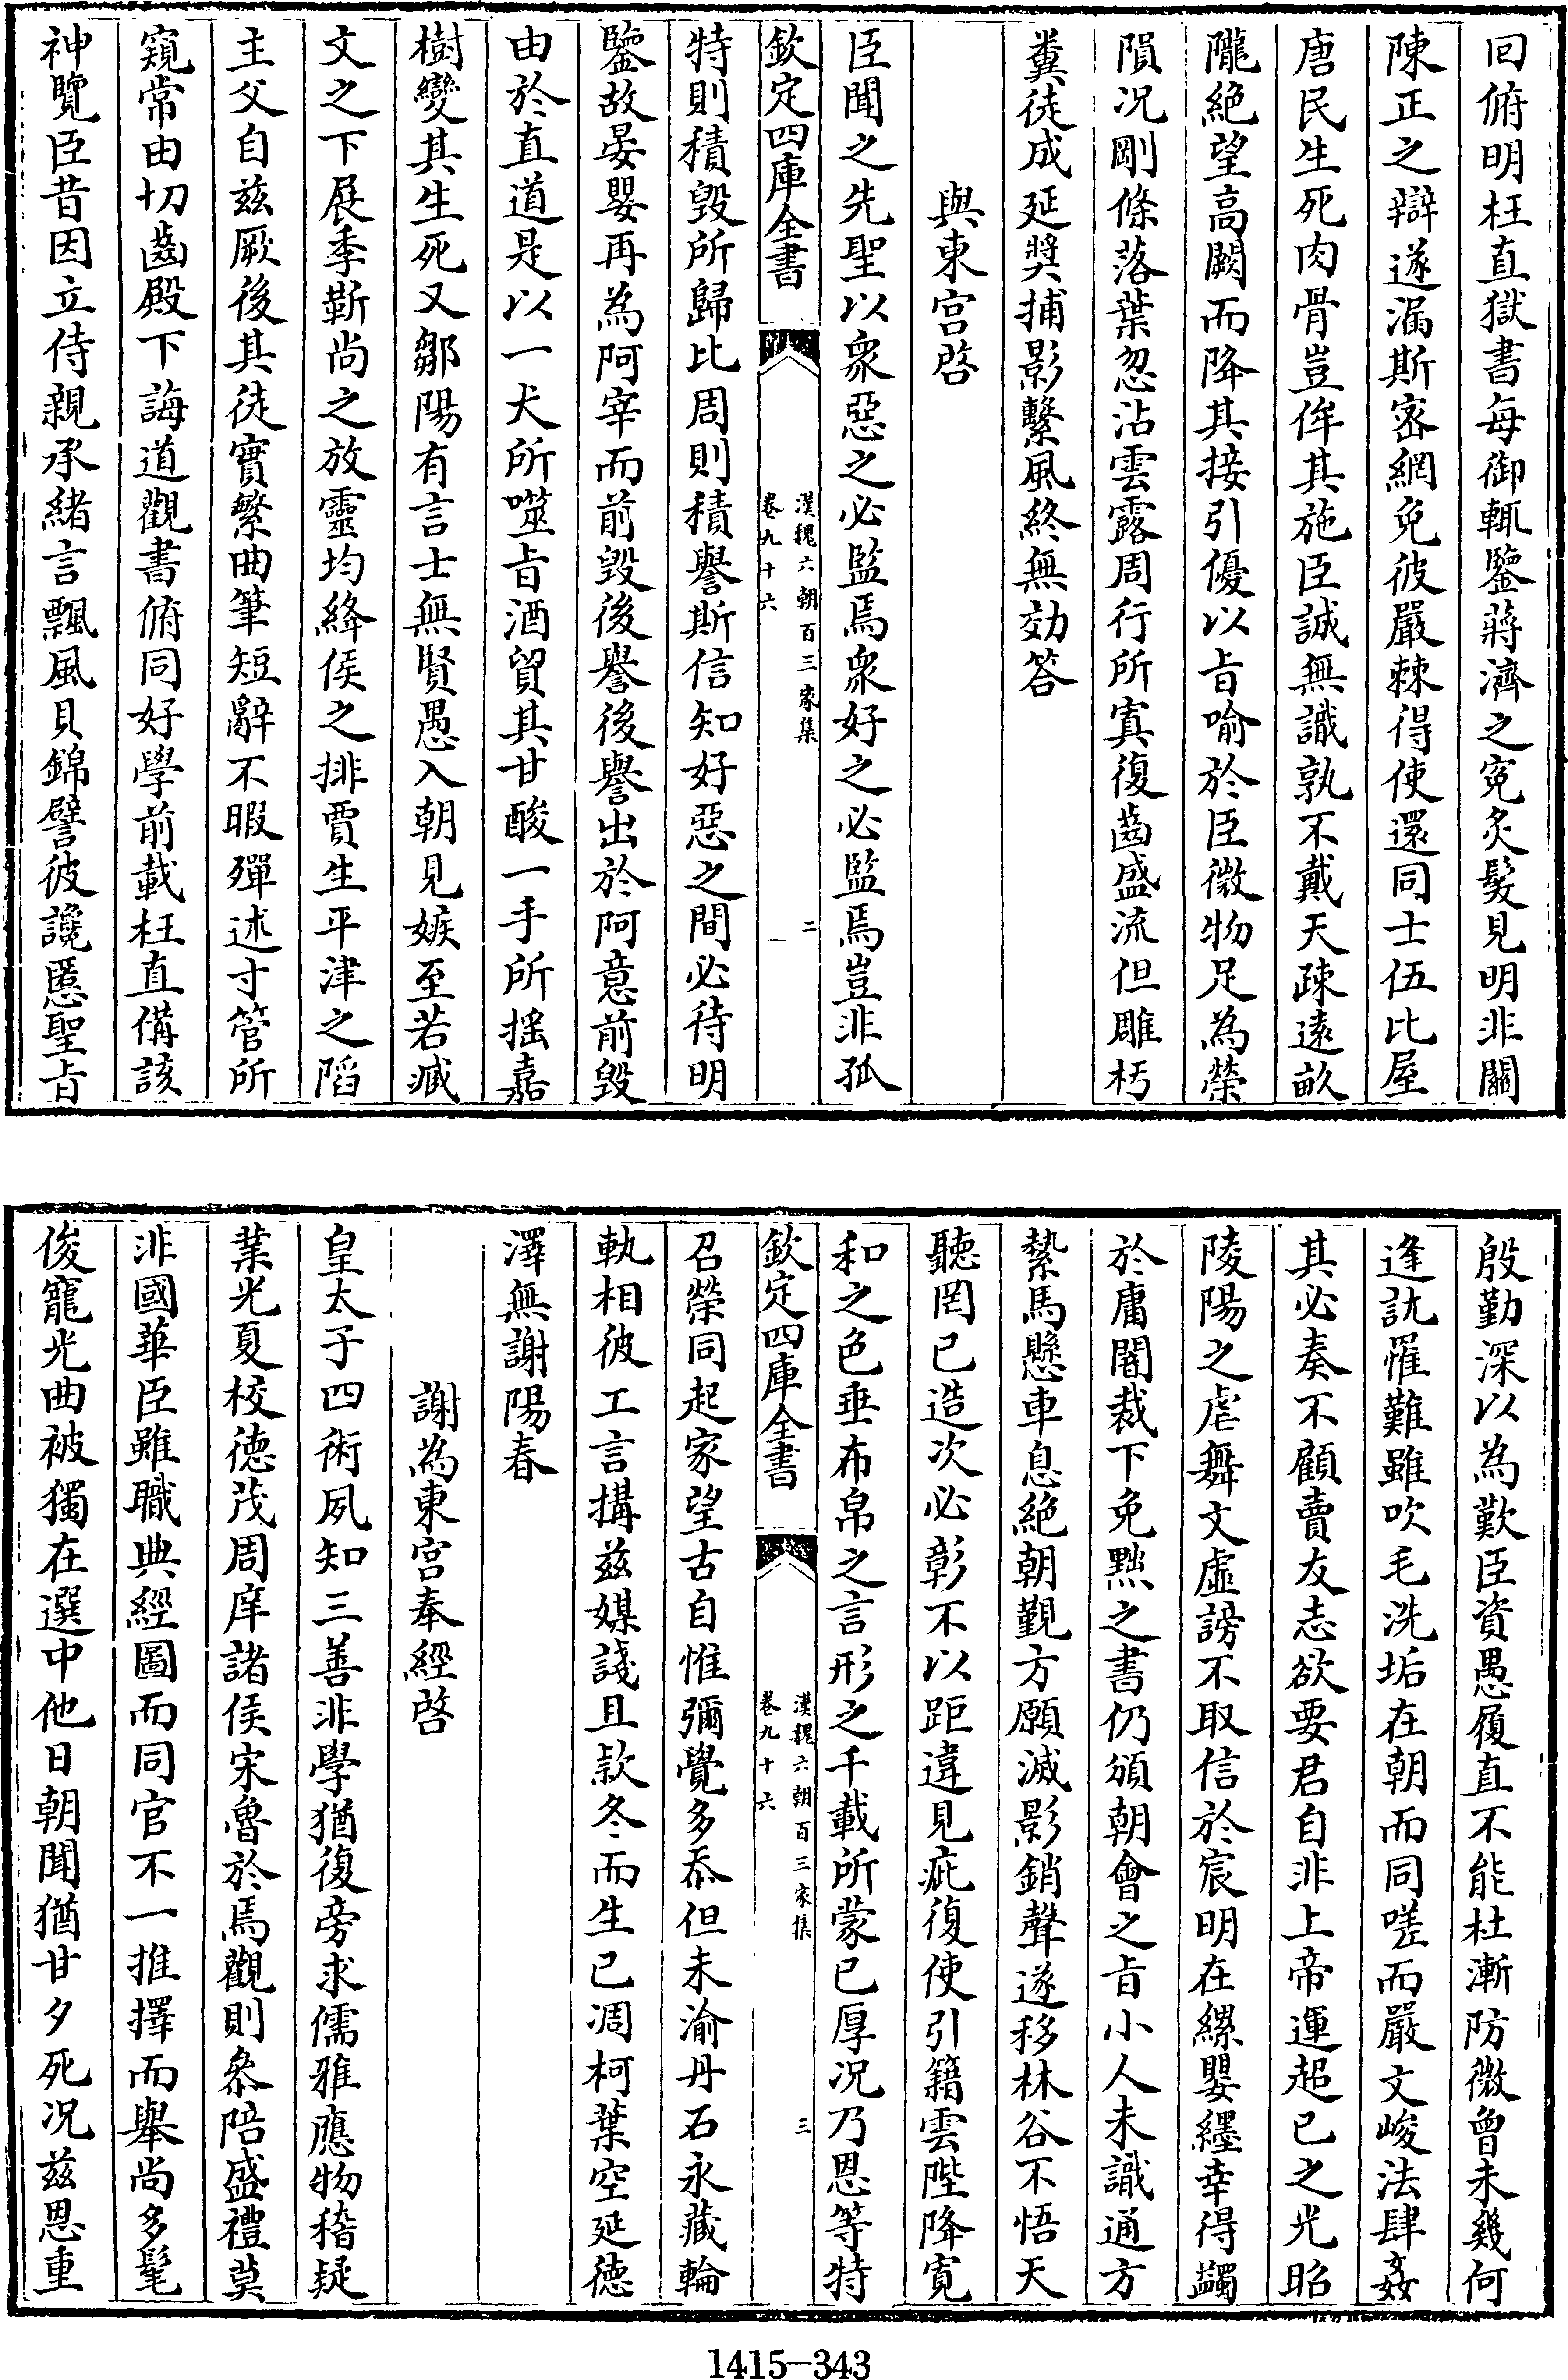 回俯明枉直獄書每御輒鑒蔣濟之寃炙髮見明非關
陳正之辯遂漏斯宻網免彼嚴棘得使還同士伍比屋
唐民生死肉骨豈侔其施臣誠無識孰不戴天疎遠畝
隴絶望高闕而降其接引優以㫖喻於臣微物足為榮
隕况剛條落葉忽沾雲露周行所寘復齒盛流但雕朽
糞徒成延奬捕影繫風終無効答
與東宫啓
臣聞之先聖以衆惡之必監焉衆好之必監焉豈非孤
欽定四庫全書
漢魏六朝百三家集
卷九十六
二
特則積毁所歸比周則積譽斯信知好惡之間必待明
鑒故晏嬰再為阿宰而前毁後譽後譽出於阿意前毁
由於直道是以一犬所噬㫖酒貿其甘酸一手所揺嘉
樹變其生死又鄒陽有言士無賢愚入朝見嫉至若臧
文之下展季靳尚之放靈均絳侯之排賈生平津之陷
主父自兹厥後其徒實繁曲筆短辭不暇殫述寸管所
窺常由切齒殿下誨道觀書俯同好學前載枉直備該
神覽臣昔因立侍親承緒言飄風貝錦譬彼讒慝聖㫖
殷勤深以為歎臣資愚履直不能杜漸防微曾未幾何
逢訧罹難雖吹毛洗垢在朝而同嗟而嚴文峻法肆姦
其必奏不顧賣友志欲要君自非上帝運超已之光昭
陵陽之虐舞文虛謗不取信於宸明在縲嬰纆幸得蠲
於庸闇裁下免黜之書仍頒朝會之㫖小人未識通方
縶馬懸車息絶朝覲方願滅影銷聲遂移林谷不悟天
聽罔已造次必彰不以距違見疵復使引籍雲陛降寛
和之色垂布帛之言形之千載所蒙已厚况乃恩等特
欽定四庫全書
漢魏六朝百三家集
卷九十六
三
召榮同起家望古自惟彌覺多忝但未渝丹石永藏輪
軌相彼工言搆兹媒諓且款冬而生已凋柯葉空延德
澤無謝陽春
謝為東宫奉經啓
皇太子四術夙知三善非學猶復旁求儒雅應物稽疑
業光夏校德茂周庠諸侯宋魯於焉觀則叅陪盛禮莫
非國華臣雖職典經圖而同官不一推擇而舉尚多髦
俊寵光曲被獨在選中他日朝聞猶甘夕死况兹恩重
1415—343